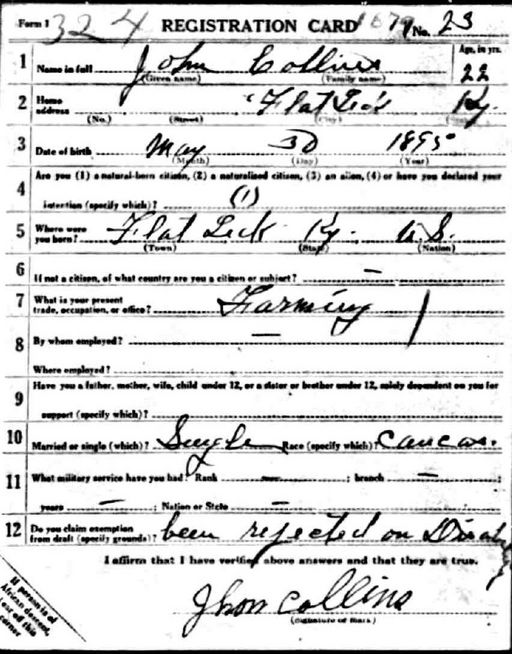 Form 1 324 REGISTRATION CARD 1879 No. 23
1 Name in full John Collins Age, in yrs. 22
(Given name) (Family name)
2 Home address Flat Lick Ky.
(No.) (Street) (City) (State)
3 Date of birth May 30 1895
(Month) (Day) (Year)
4 Are you (1) a natural-born citizen, (2) a naturalized citizen, (3) an alien, (4) or have you declared your
intention (specify which)? (1)
5 Where were you born? Flat Lick Ky. U.S.
(Town) (State) (Nation)
6 If not a citizen, of what country are you a citizen or subject? —
7 What is your present trade, occupation, or office? Farming
8 By whom employed? —
Where employed?
9 Have you a father, mother, wife, child under 12, or a sister or brother under 12, solely dependent on you for
support (specify which)?
10 Married or single (which)? Single Race (specify which)? Caucas.
11 What military service have you had? Rank — ; branch —
years — ; Nation or State —
12 Do you claim exemption from draft (specify grounds)? been rejected on
I affirm that I have verified above answers and that they are true.
Jhon Collins
(Signature or mark)
If person is of
African descent,
tear off this
corner